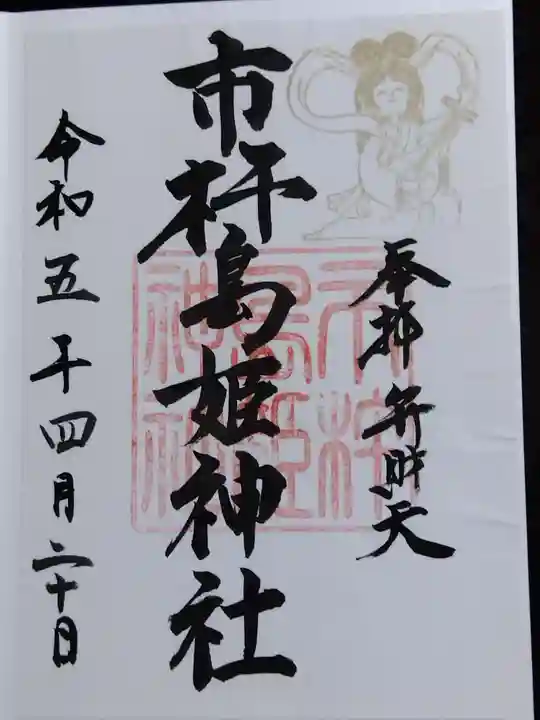 奉拝 弁財天
市杵島姫神社
令和五年四月二十日
市杵
島姫
神社